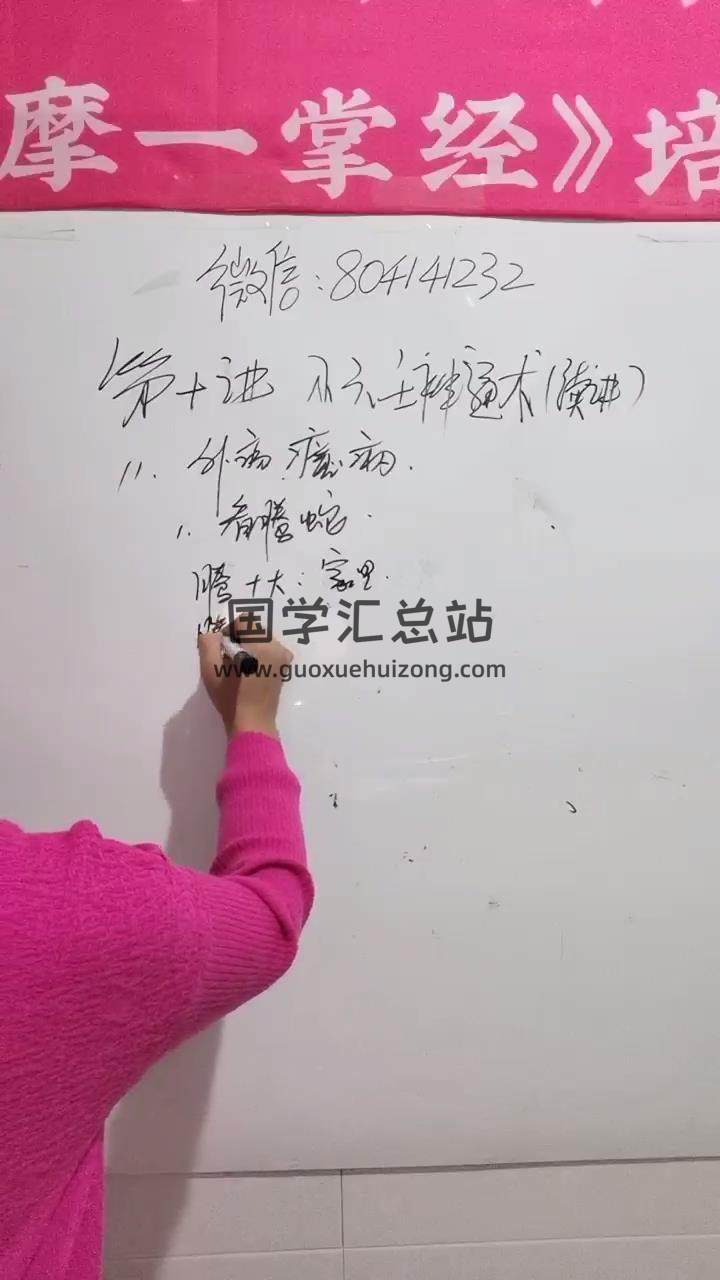 摩一掌经》培
微信：804141232
第十讲 小六壬神通术（续讲）
11. 外病.
1. 看腾蛇.
腾+大：家里.
国学汇总站
www.guoxuehuizong.com